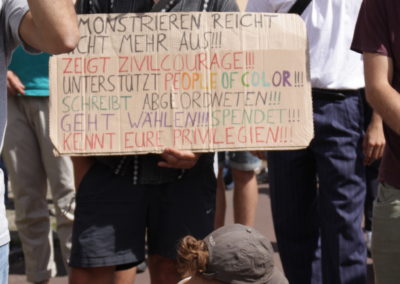 DEMONSTRIEREN REICHT
NICHT MEHR AUS!!!
ZEIGT ZIVILCOURAGE!!!
UNTERSTÜTZT PEOPLE OF COLOR!!!
SCHREIBT ABGEORDNETEN!!!
GEHT WÄHLEN!!! SPENDET!!!
KENNT EURE PRIVILEGIEN!!!